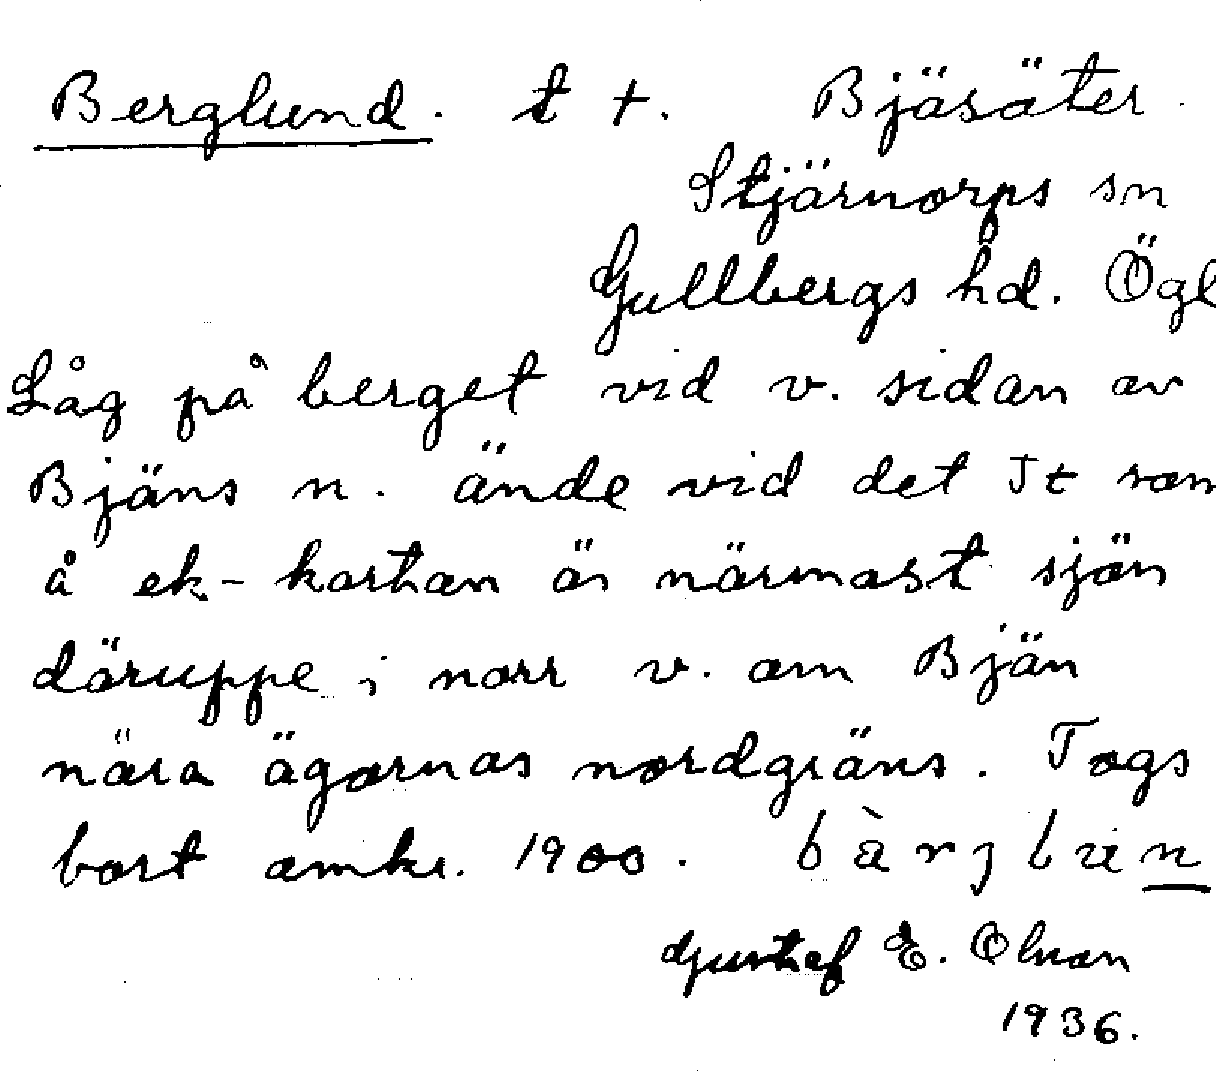 Berglund. t †. Bjäsäter.
Stjärnorps sn
Gullbergs hd. Ögl
Låg på berget vid v. sidan av
Bjäns n. ände vid det Jt som
å ek-kartan är närmast sjön
däruppe i norr v. om Bjän
nära ägornas nordgräns. Togs
bort omkr. 1900.
Gustaf E. Olson
1936.